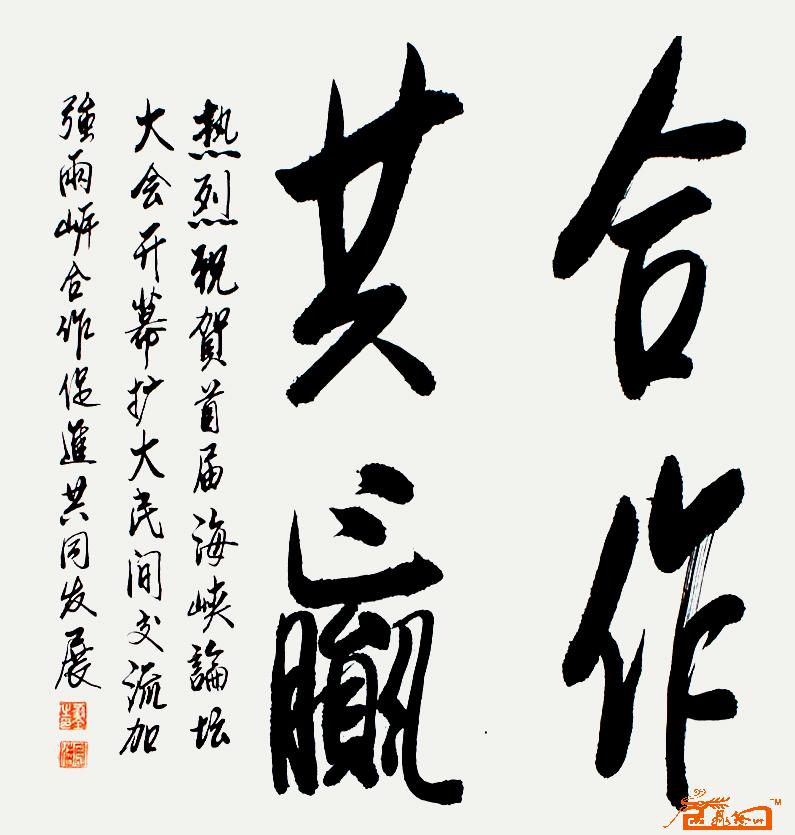 合作
共赢
热烈祝贺首届海峡論坛
大会开幕扩大民间交流加
强兩岸合作促進共同发展